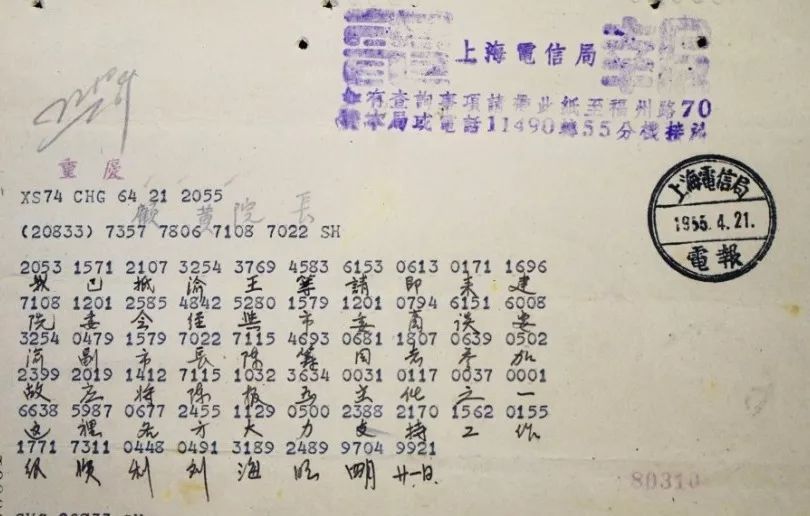 上海電信局
如有查詢事項請帶此紙至福州路70
號本局或電話11490轉55分機接洽
重慶
XS74 CHG 64 21 2055
顧黃院長
(20833) 7357 7806 7108 7022 SH
上海電信局
1955.4.21.
電報
2053 1571 2107 3254 3769 4583 6153 0613 0171 1696
我已抵渝王等請即來建
7108 1201 2585 4842 5280 1579 1201 0794 6151 6008
院委会經與市委商談要
3254 0479 1579 7022 7115 4693 0681 1807 0639 0502
渝副市長陳籌同志參加
2399 2019 1412 7115 1032 3634 0031 0117 0037 0001
故应將陳報為主任之一
6638 5987 0677 2455 1129 0500 2388 2170 1562 0155
這裡各方大力支持工作
1771 7311 0448 0491 3189 2489 9704 9921
很順利劉海旺四月廿一日
80310